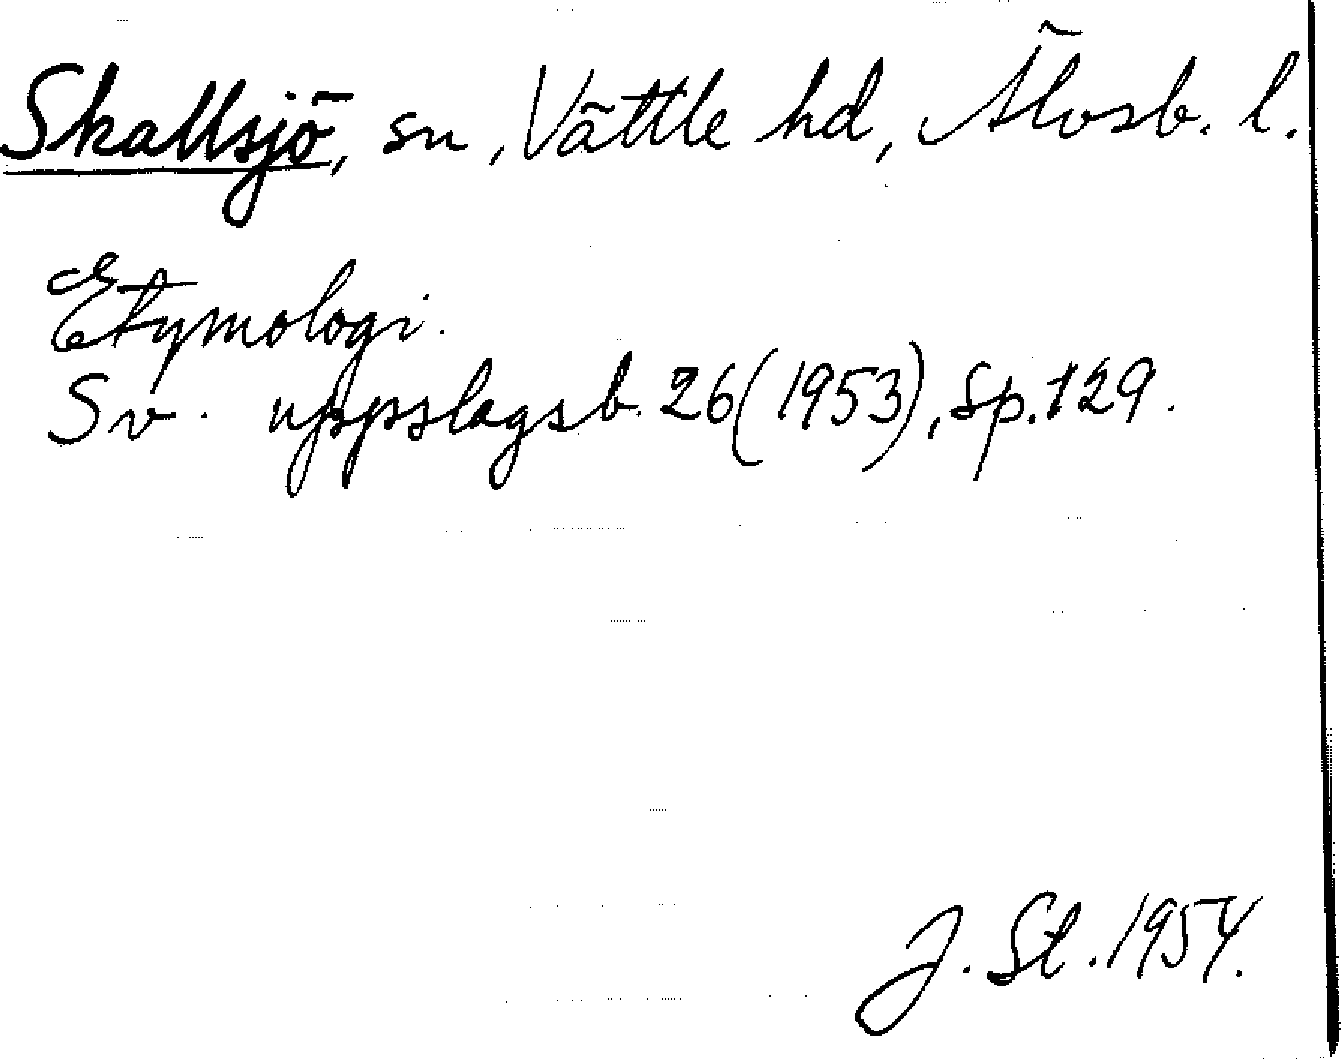 Skallsjö, sn, Vättle hd, Älvsb. l.
Etymologi.
Sv. uppslagsb. 26 (1953), sp. 129.
J. St. 1954.